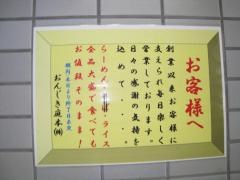 お客様へ
創業以来お客様に
支えられ毎日楽しく
営業しております。
日々の感謝の気持を
込めて・・・。
らーめん、ライス
全品大盛で食べても
お値段そのまま!
おんじき庭本㈱